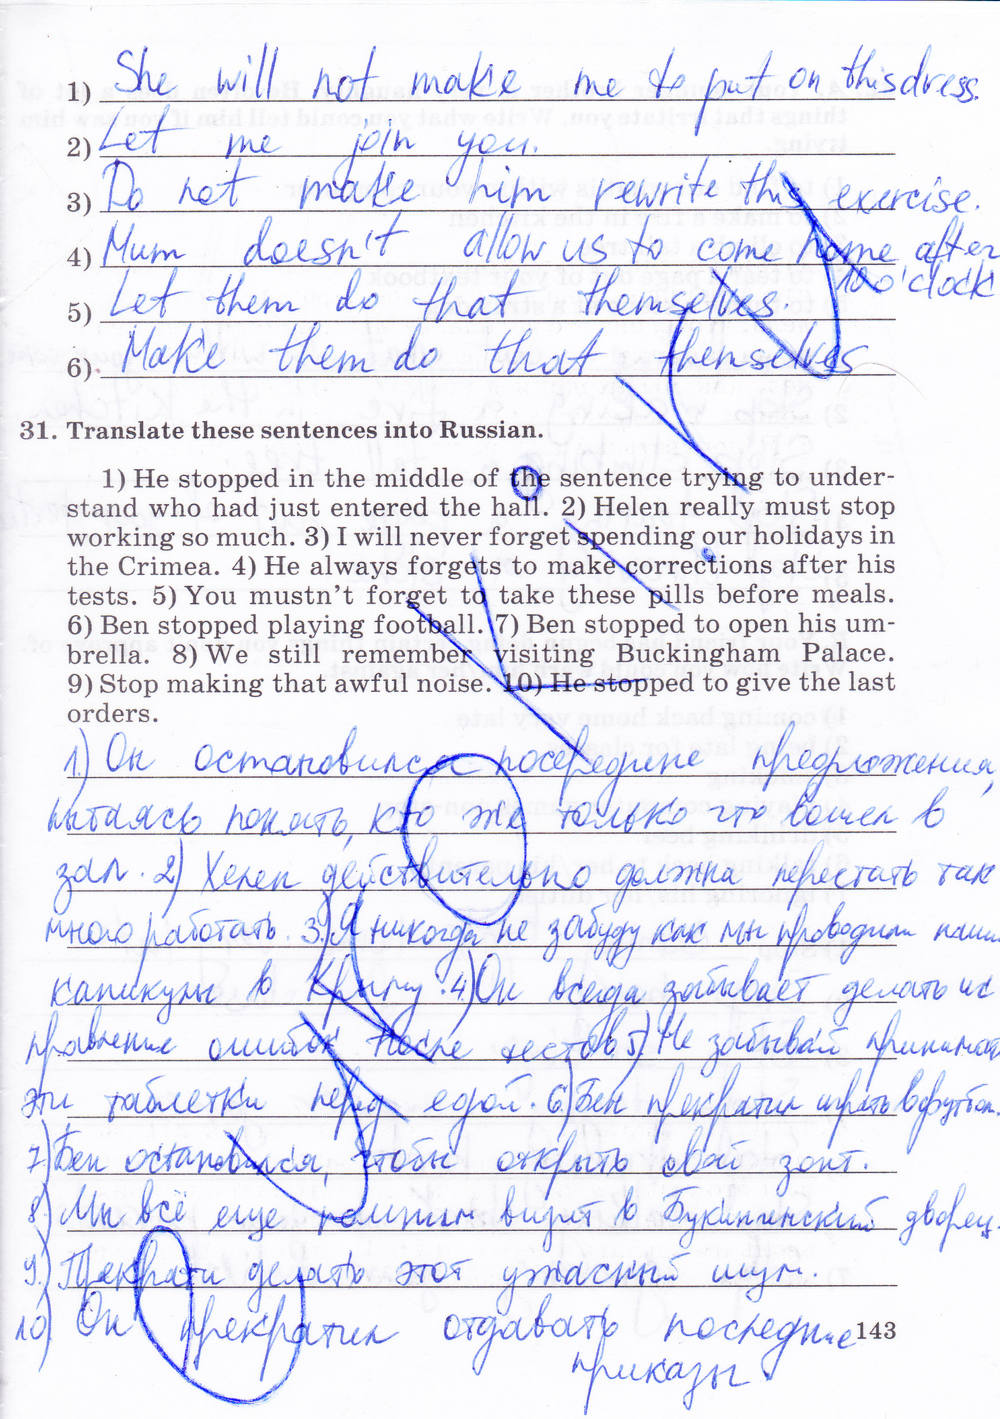 1) She will not make me to put on this dress.
2) Let me join you.
3) Do not make him rewrite this exercise.
4) Mum doesn't allow us to come home after 10 o'clock
5) Let them do that themselves
6) Make them do that themselves
31. Translate these sentences into Russian.
1) He stopped in the middle of the sentence trying to under-
stand who had just entered the hall. 2) Helen really must stop
working so much. 3) I will never forget spending our holidays in
the Crimea. 4) He always forgets to make corrections after his
tests. 5) You mustn't forget to take these pills before meals.
6) Ben stopped playing football. 7) Ben stopped to open his um-
brella. 8) We still remember visiting Buckingham Palace.
9) Stop making that awful noise. 10) He stopped to give the last
orders.
1.) Он остановился посередине предложения,
пытаясь понять, кто же только что вошел в
зал. 2) Хелен действительно должна перестать так
много работать. 3.) Я никогда не забуду как мы проводили наши
каникулы в Крыму. 4.) Он всегда забывает делать ис
правление ошибок после тестов 5.) Не забывай принимать
эти таблетки перед едой. 6.) Бен прекратил играть в футбол.
7.) Бен остановился, чтобы открыть свой зонт.
8.) Мы всё еще помним визит в Букингемский дворец.
9.) Прекрати делать этот ужасный шум.
10) Он прекратил отдавать последние
приказы.
143